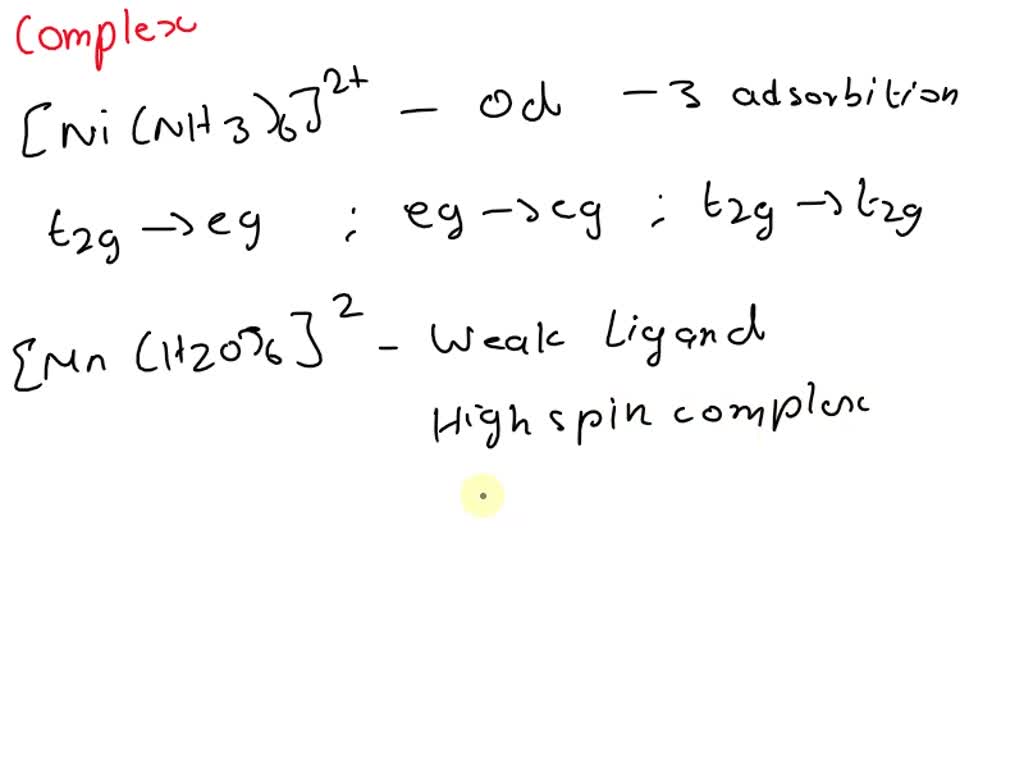 Complex
[Ni (NH3)6]2+ - Od - 3 adsorbition
t2g → eg ; eg → eg ; t2g → t2g
[Mn (H2O)6]2 - Weak Ligand
High spin complex